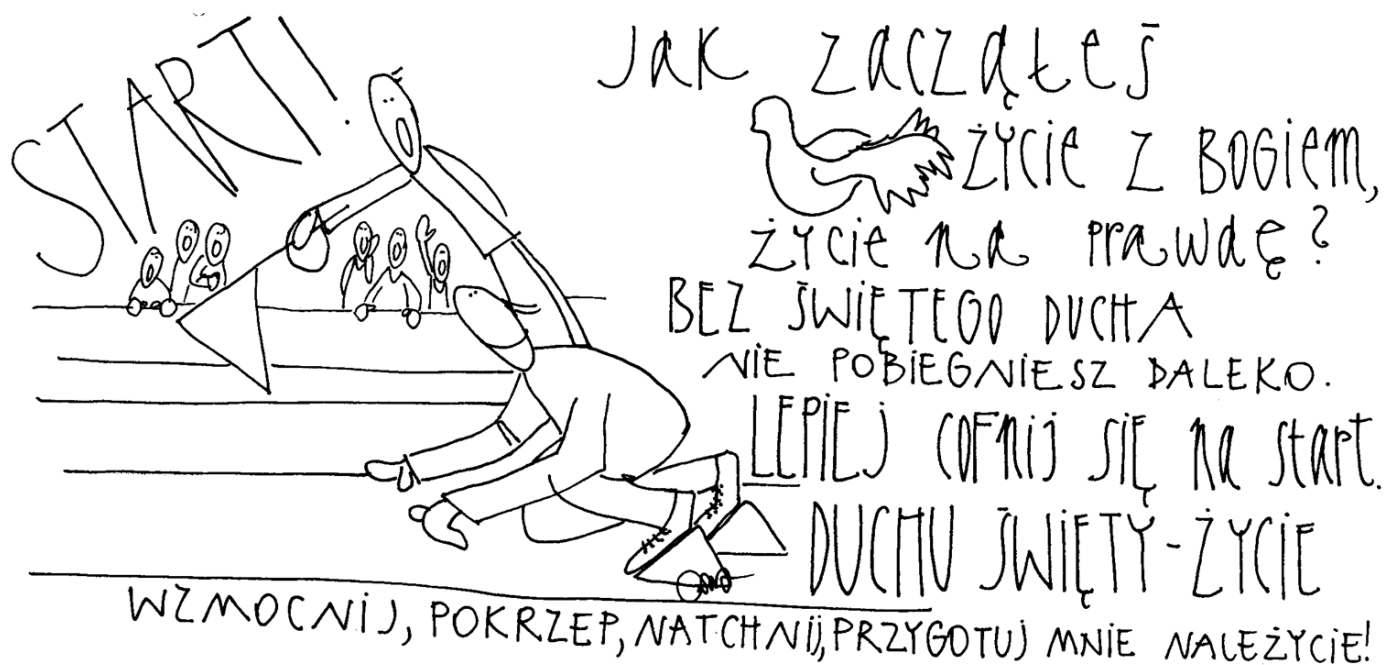 START!
Jak zacząłeś
życie z Bogiem,
życie na prawdę?
BEZ ŚWIĘTEGO DUCHA
NIE POBIEGNIESZ DALEKO.
LEPIEJ COFNIJ SIĘ NA START.
DUCHU ŚWIĘTY-ŻYCIE
WZMOCNIJ, POKRZEP, NATCHNIJ, PRZYGOTUJ MNIE NALEŻYCIE!